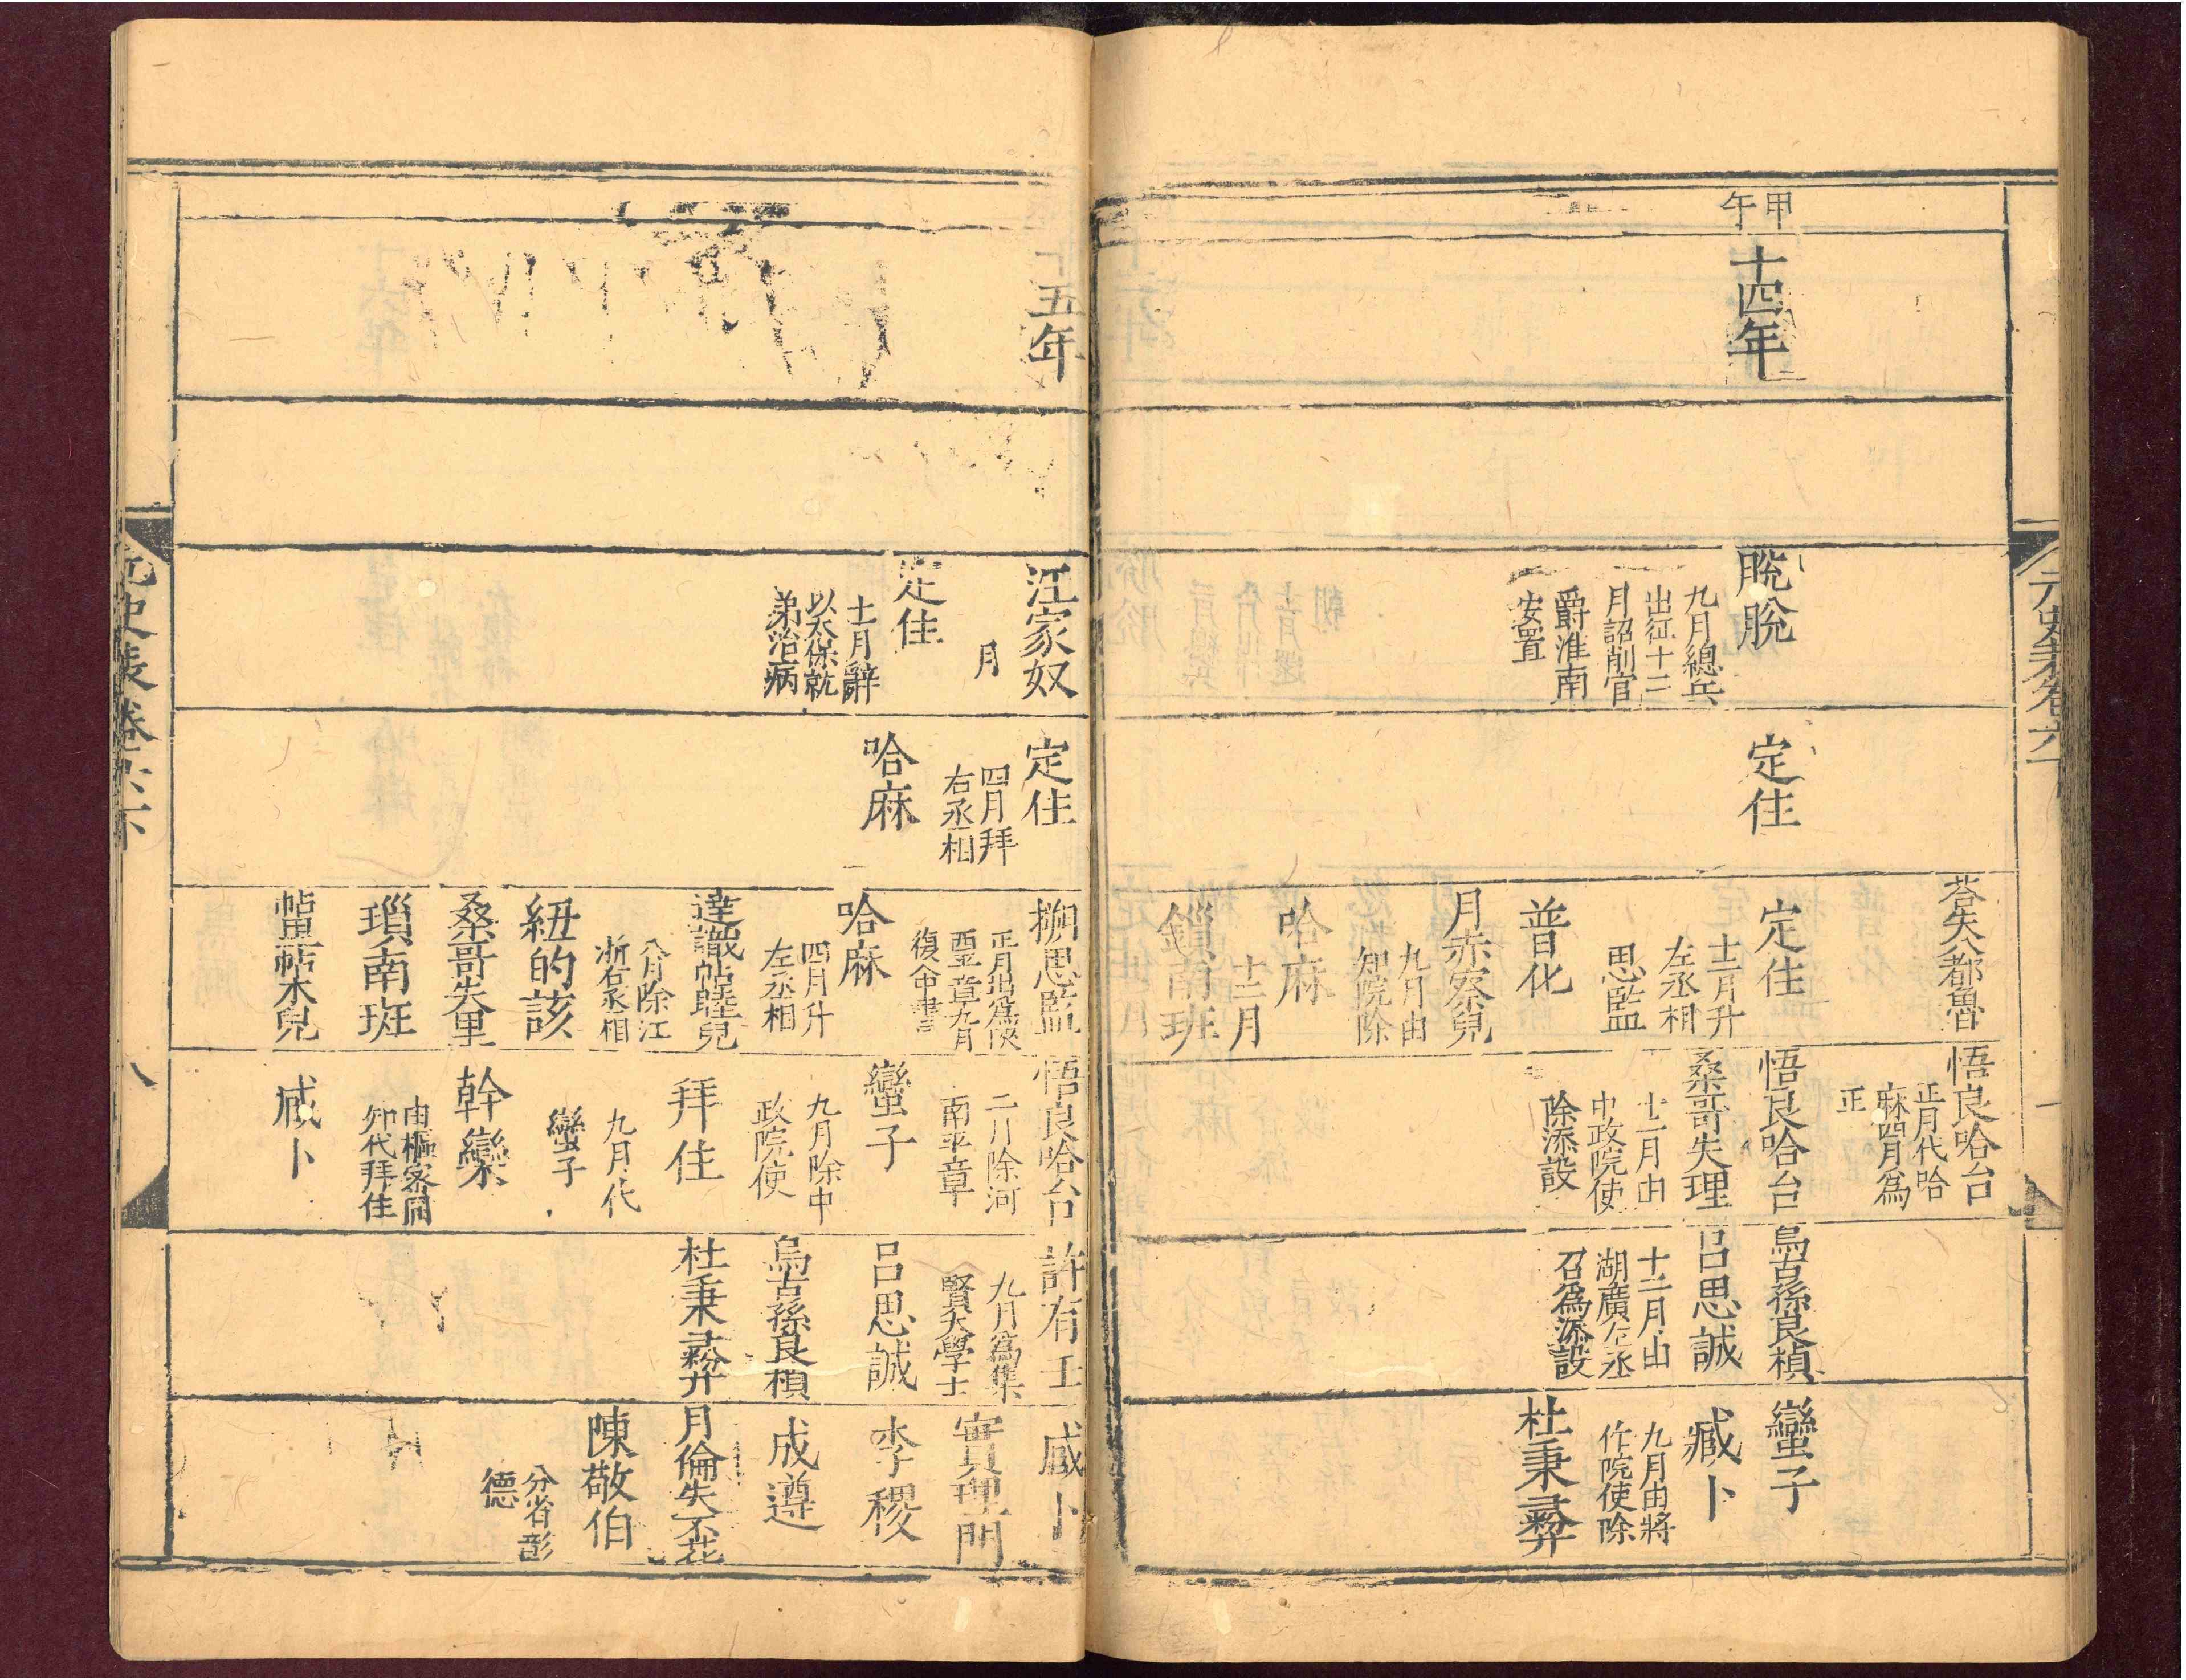 甲
午
十四年
脫脫
九月總兵
出征十二
月詔削官
爵淮南
安置
定住
荅失八都魯
定住
十一月升
左丞相
思監
普化
月赤察兒
九月由
知院除
哈麻
十二月
鎖南班
悟良哈台
正月代哈
麻四月爲
正
悟良哈台
桑哥失理
十一月由
中政院使
除添設
烏古孫良楨
呂思誠
十二月由
湖廣左丞
召爲添設
蠻子
臧卜
九月由將
作院使除
杜秉彝
元史表卷六
十五年
汪家奴
月
定住
十一月辭
以太保就
弟治病
定住
四月拜
右丞相
哈麻
搠思監
正月出爲陝
西平章九月
復令中書
哈麻
四月升
左丞相
達識帖睦兒
八月除江
浙右丞相
紐的該
桑哥失里
瑣南班
帖里帖木兒
悟良哈台
二月除河
南平章
蠻子
九月除中
政院使
拜住
九月代
蠻子
幹欒
由樞密同
知代拜住
臧卜
許有壬
九月爲集
賢大學士
呂思誠
烏古孫良楨
杜秉彝
臧卜
實理門
李稷
成遵
月倫失不花
陳敬伯
分省彰
德
元史表卷六下
八